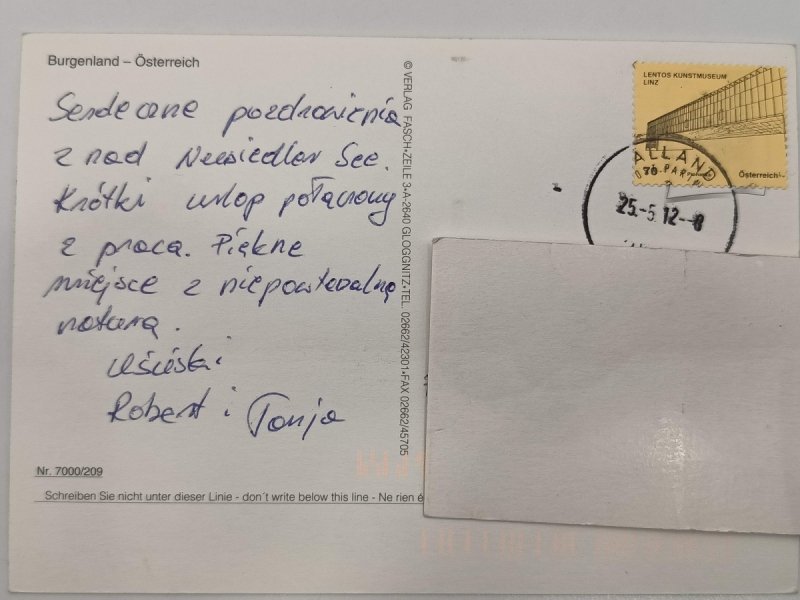 Burgenland – Österreich
Serdeczne pozdrowienia
z nad Neusiedler See.
Krótki urlop połączony
z pracą. Piękne
miejsce z niepowtarzalną
naturą.
Uściski
Robert i Tonja
Nr. 7000/209
Schreiben Sie nicht unter dieser Linie - don´t write below this line - Ne rien é
© VERLAG FASCH•ZEILE 3•A-2640 GLOGGNITZ•TEL. 02662/42301•FAX 02662/45705
LENTOS KUNSTMUSEUM
LINZ
70
Österreich
ALLAND
25.-5.12--8